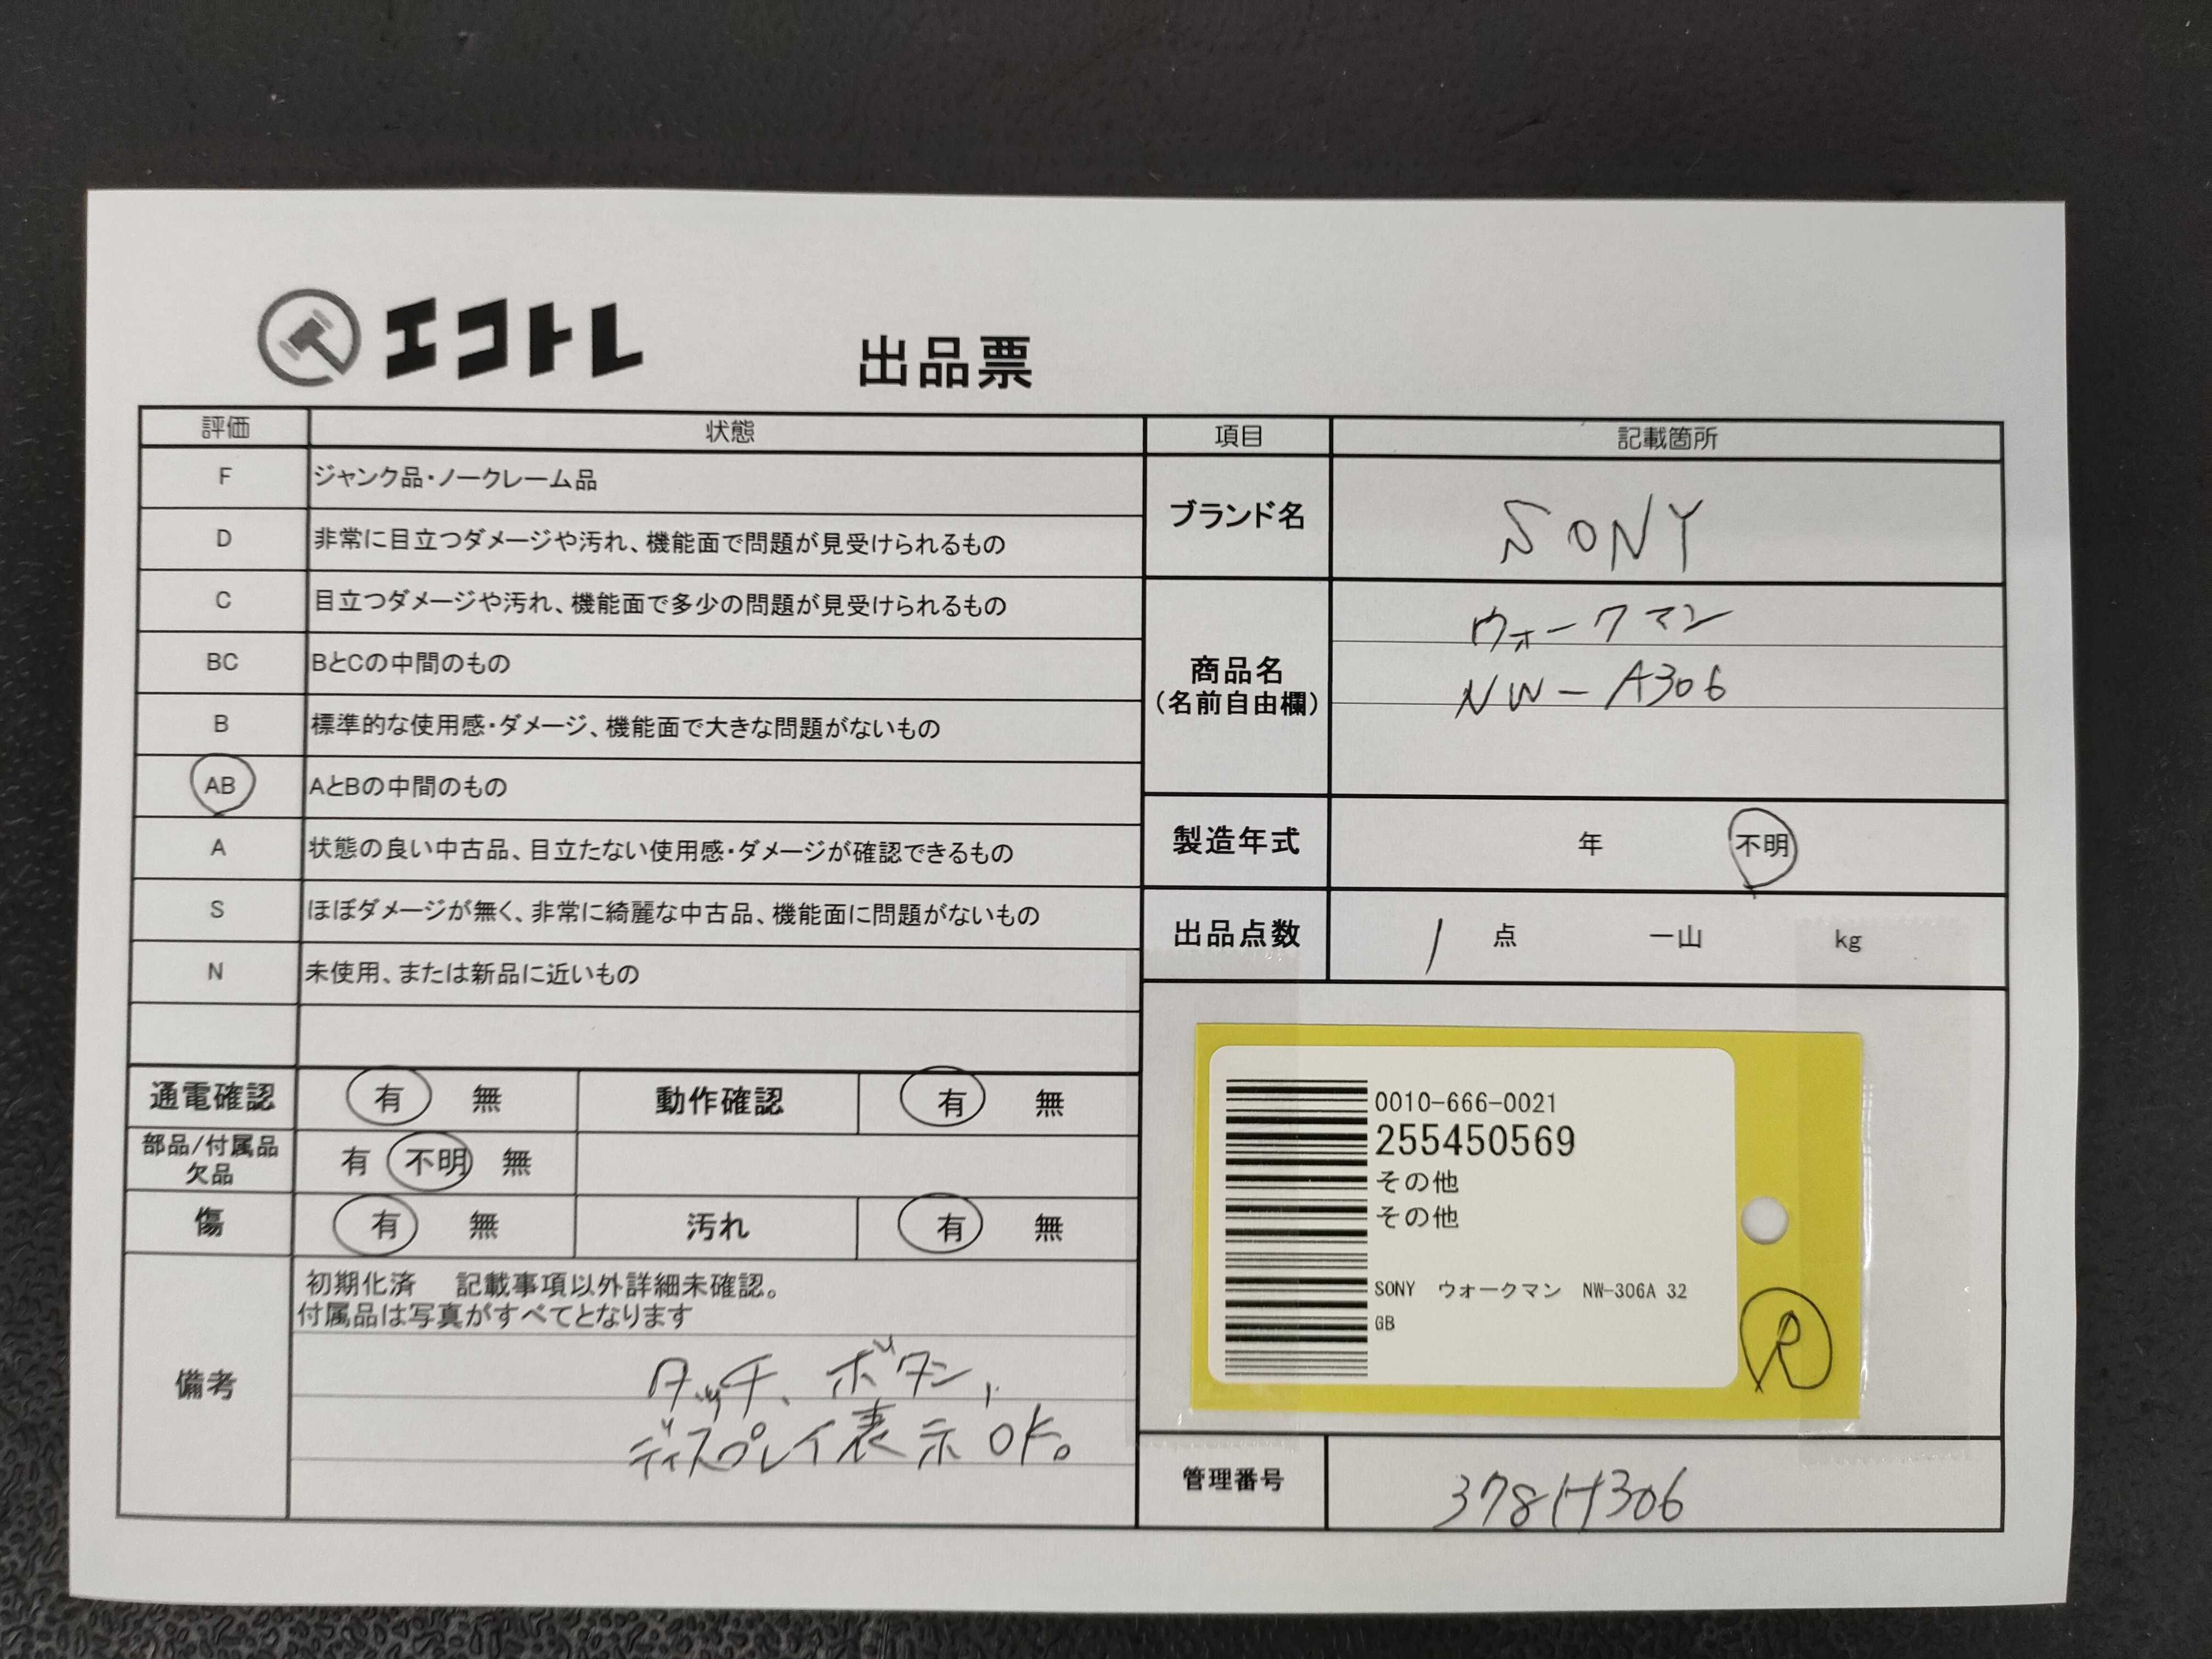 エコトレ
出品票
評価 状態
F ジャンク品・ノークレーム品
D 非常に目立つダメージや汚れ、機能面で問題が見受けられるもの
C 目立つダメージや汚れ、機能面で多少の問題が見受けられるもの
BC BとCの中間のもの
B 標準的な使用感・ダメージ、機能面で大きな問題がないもの
AB AとBの中間のもの
A 状態の良い中古品、目立たない使用感・ダメージが確認できるもの
S ほぼダメージが無く、非常に綺麗な中古品、機能面に問題がないもの
N 未使用、または新品に近いもの
通電確認 有 無 動作確認 有 無
部品/付属品
欠品
有 不明 無
傷 有 無 汚れ 有 無
備考
初期化済 記載事項以外詳細未確認。
付属品は写真がすべてとなります
タッチ、ボタン、
ディスプレイ表示OK。
項目 記載箇所
ブランド名 SONY
商品名
(名前自由欄)
ウォークマン
NW-A306
製造年式 年 不明
出品点数 1 点 一山 kg
0010-666-0021
255450569
その他
その他
SONY ウォークマン NW-306A 32
GB
R
管理番号 378H306